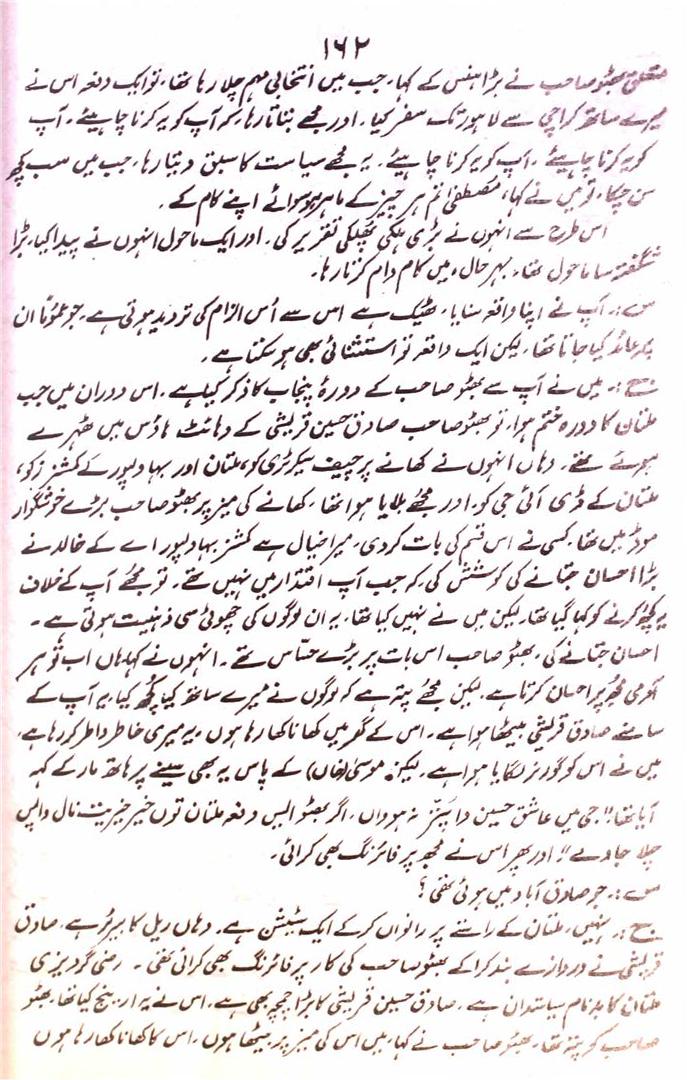 ۱۶۲
متعلق بھٹو صاحب نے بڑا ہنس کے کہا، جب میں انتخابی مہم چلا رہا تھا، تو ایک دفعہ اس نے
میرے ساتھ کراچی سے لاہور تک سفر کیا۔ اور مجھے بتاتا رہا، کہ آپ کو یہ کرنا چاہیئے، آپ
کو یہ کرنا چاہیئے۔ آپ کو یہ کرنا چاہیئے۔ یہ مجھے سیاست کا سبق دیتا رہا، جب میں سب کچھ
سن چکا، تو میں نے کہا، مصطفیٰ تم ہر چیز کے ماہر ہو سوائے اپنے کام کے۔
اس طرح سے انہوں نے بڑی ہلکی پھلکی تقریر کی۔ اور ایک ماحول انہوں نے پیدا کیا، بڑا
شگفتہ سا ماحول تھا، بہر حال، میں کام وام کرتا رہا۔
س:۔ آپ نے اپنا واقعہ سنایا، ٹھیک ہے اس سے اُس الزام کی تردید ہوتی ہے، جو عموماً ان
پر عائد کیا جاتا تھا، لیکن ایک واقعہ تو استثنائی بھی ہو سکتا ہے۔
ج:۔ میں نے آپ سے بھٹو صاحب کے دورۂ پنجاب کا ذکر کیا ہے۔ اس دوران میں جب
ملتان کا دورہ ختم ہوا، تو بھٹو صاحب صادق حسین قریشی کے وہائٹ ہاؤس میں ٹھہرے
ہوئے تھے۔ وہاں انہوں نے کھانے پر چیف سیکرٹری کو، ملتان اور بہاولپور کے کمشنرز کو،
ملتان کے ڈی آئی جی کو، اور مجھے بلایا ہوا تھا، کھانے کی میز پر بھٹو صاحب بڑے خوشگوار
موڈ میں تھا، کسی نے اس قسم کی بات کر دی، میرا خیال ہے کمشنر بہاولپور اے کے خالد نے
بڑا احسان جتانے کی کوشش کی، کہ جب آپ اقتدار میں نہیں تھے۔ تو مجھے آپ کے خلاف
یہ کچھ کرنے کو کہا گیا تھا، لیکن میں نے نہیں کیا تھا، یہ ان لوگوں کی چھوٹی سی ذہنیت ہوتی ہے۔
احسان جتانے کی، بھٹو صاحب اس بات پر بڑے حساس تھے۔ انہوں نے کہا ہاں اب تو ہر
آدمی مجھ پر احسان کرتا ہے، لیکن مجھے پتہ ہے کہ لوگوں نے میرے ساتھ کیا کچھ کیا، یہ آپ کے
سامنے صادق قریشی بیٹھا ہوا ہے۔ اس کے گھر میں کھانا کھا رہا ہوں، یہ میری خاطر واطر کر رہا ہے،
میں نے اس کو گورنر لگایا ہوا ہے، لیکن موسیٰ (خاں) کے پاس یہ بھی سینے پر ہاتھ مار کے کہہ
آیا تھا! "جی میں عاشق حسین دا پتر نہ ہوواں، اگر بھٹو ایس دفعہ ملتان توں خیر خیریت نال واپس
چلا جاوے" اور پھر اس نے مجھ پر فائرنگ بھی کرائی۔
س:۔ جو صادق آباد میں ہوئی تھی؟
ج:۔ نہیں، ملتان کے راستے پر رانواں کر کے ایک سٹیشن ہے۔ وہاں ریل کا بیرئر ہے، صادق
قریشی نے دروازے بند کرا کے بھٹو صاحب کی کار پر فائرنگ بھی کرائی تھی۔ رضی گردیزی
ملتان کا بدنام سیاستدان ہے۔ صادق حسین قریشی کا بڑا چمچہ بھی ہے، اس نے یہ ارینج کیا تھا، بھٹو
صاحب کو پتہ تھا، بھٹو صاحب نے کہا، میں اس کی میز پر بیٹھا ہوں، اس کا کھانا کھا رہا ہوں